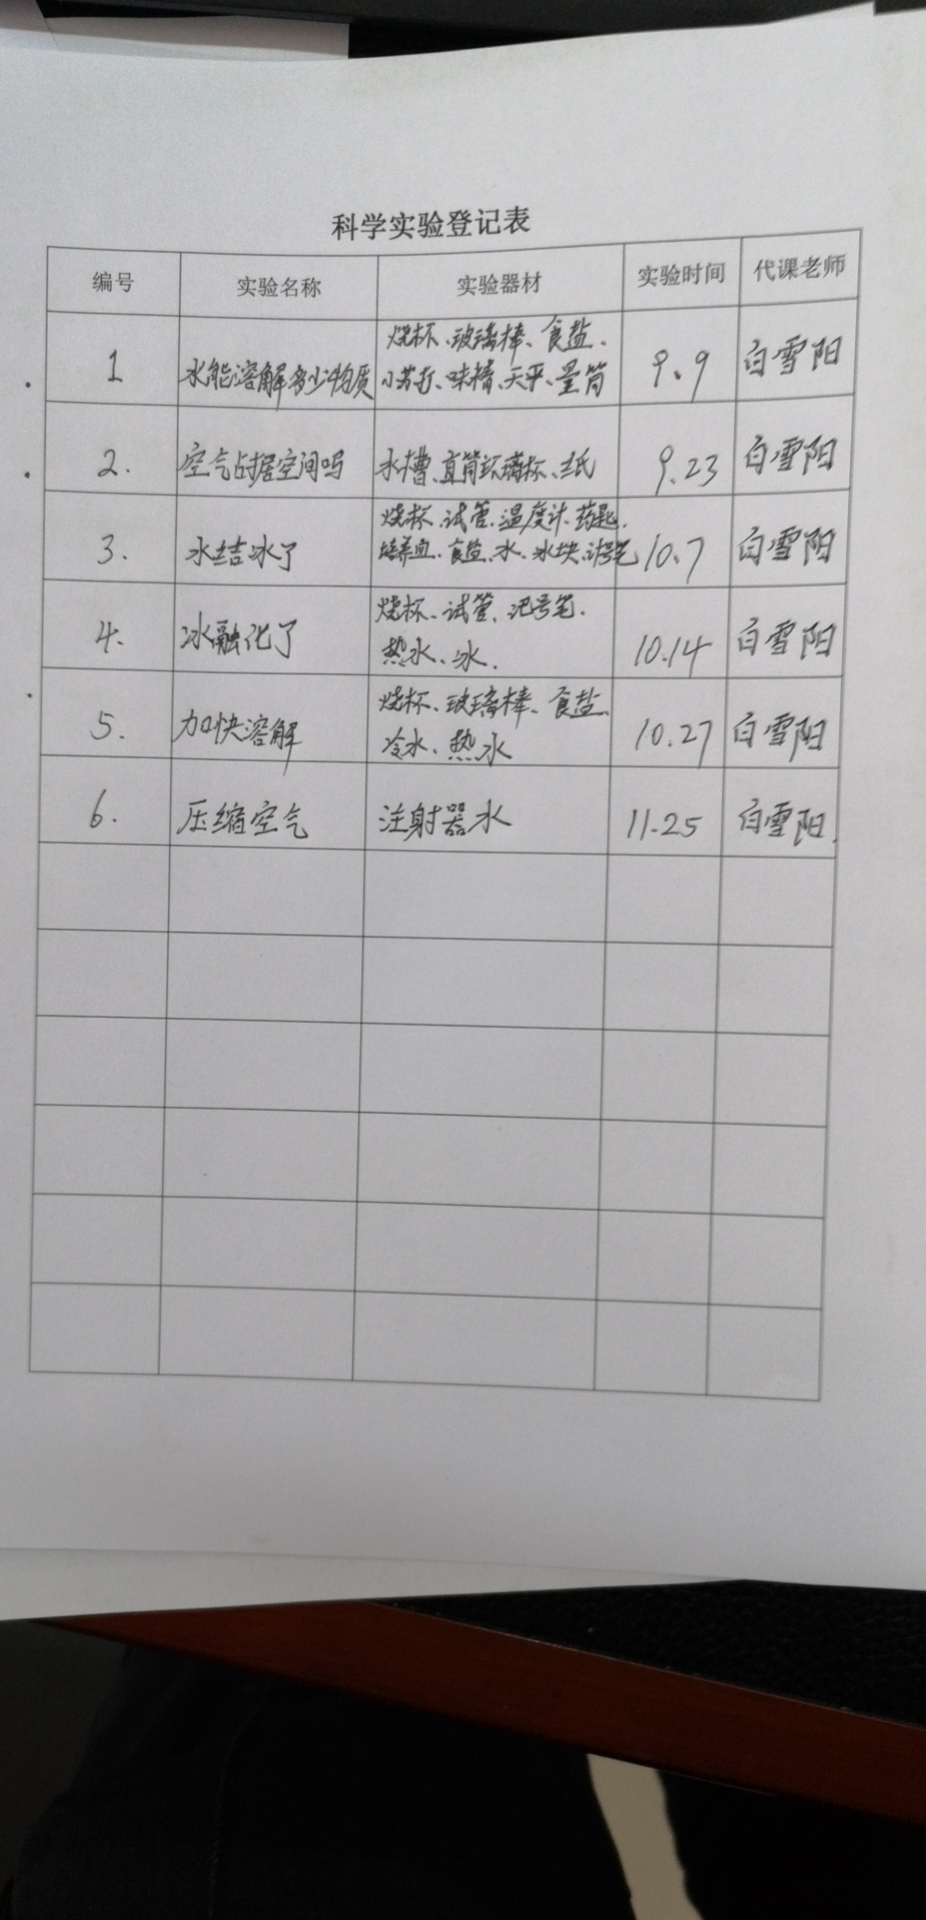 科学实验登记表
编号 实验名称 实验器材 实验时间 代课老师
1 水能溶解多少物质 烧杯、玻璃棒、食盐、
小苏打、味精、天平、量筒 9.9 白雪阳
2. 空气占据空间吗 水槽、直筒玻璃杯、纸 9.23 白雪阳
3. 水结冰了 烧杯、试管、温度计、药匙、
培养皿、食盐、水、冰块、记号笔 10.7 白雪阳
4. 冰融化了 烧杯、试管、记号笔、
热水、冰. 10.14 白雪阳
5. 加快溶解 烧杯、玻璃棒、食盐、
冷水、热水 10.27 白雪阳
6. 压缩空气 注射器水 11.25 白雪阳.